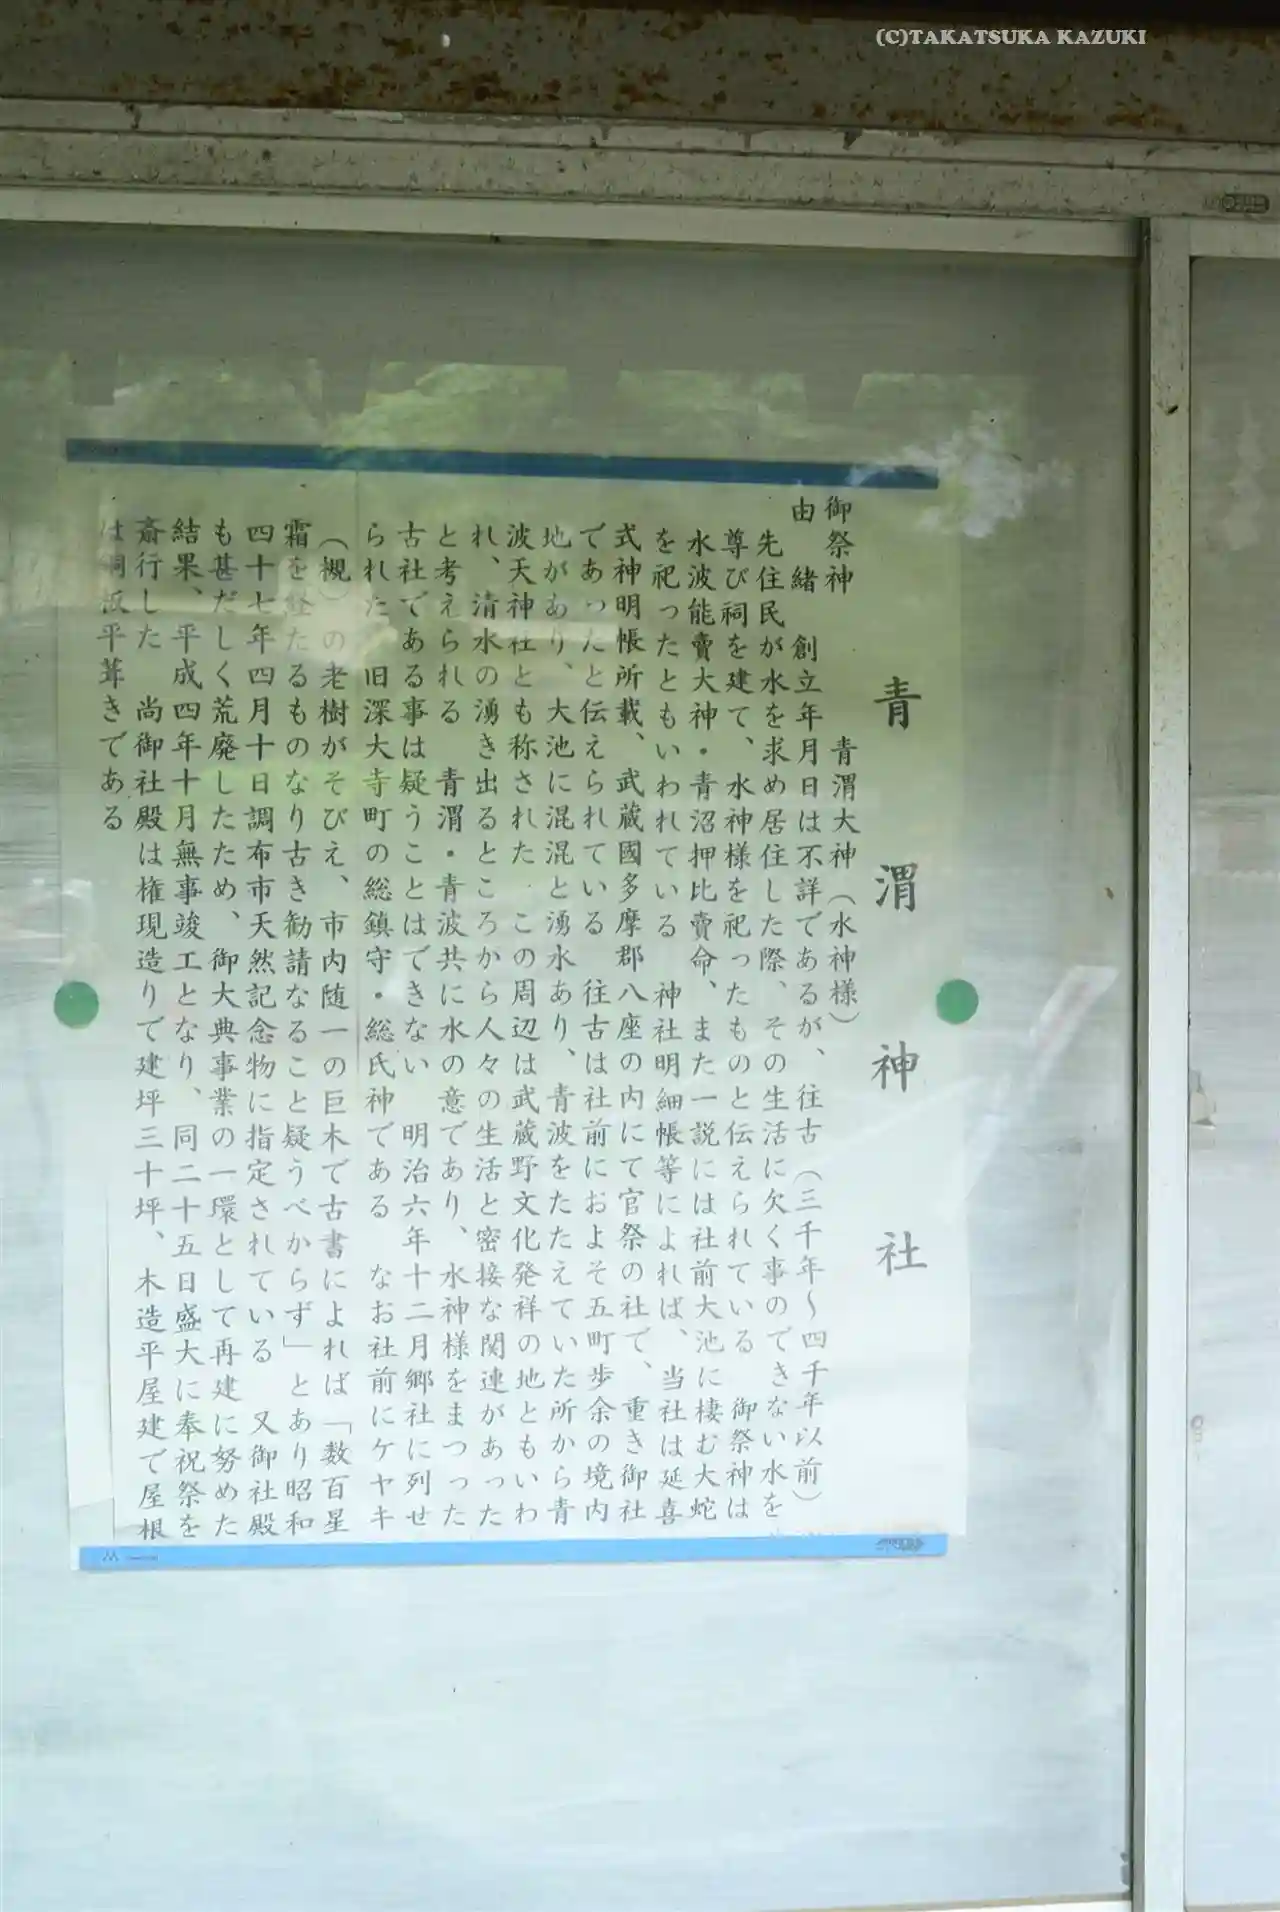 (C)TAKATSUKA KAZUKI
青渭神社
御祭神　青渭大神（水神様）
由緒　創立年月日は不詳であるが、往古（三千年～四千年以前）
先住民が水を求め居住した際、その生活に欠く事のできない水を
尊び祠を建て、水神様を祀ったものと伝えられている　御祭神は
水波能賣大神・青沼押比賣命、また一説には社前大池に棲む大蛇
を祀ったともいわれている　神社明細帳等によれば、当社は延喜
式神明帳所載、武蔵國多摩郡八座の内にて官祭の社で、重き御社
であったと伝えられている　往古は社前におよそ五町歩余の境内
地があり、大池に混混と湧水あり、青波をたたえていた所から青
波天神社とも称された　この周辺は武蔵野文化発祥の地ともいわ
れ、清水の湧き出るところから人々の生活と密接な関連があった
と考えられる　青渭・青波共に水の意であり、水神様をまつった
古社である事は疑うことはできない　明治六年十二月郷社に列せ
られた　旧深大寺町の総鎮守・総氏神である　なお社前にケヤキ
（槻）の老樹がそびえ、市内随一の巨木で古書によれば「数百星
霜を経たるものなり古き勧請なること疑うべからず」とあり昭和
四十七年四月十日調布市天然記念物に指定されている　又御社殿
も甚だしく荒廃したため、御大典事業の一環として再建に努めた
結果、平成四年十月無事竣工となり、同二十五日盛大に奉祝祭を
斎行した　尚御社殿は権現造りで建坪三十坪、木造平屋建で屋根
は銅板平葺きである